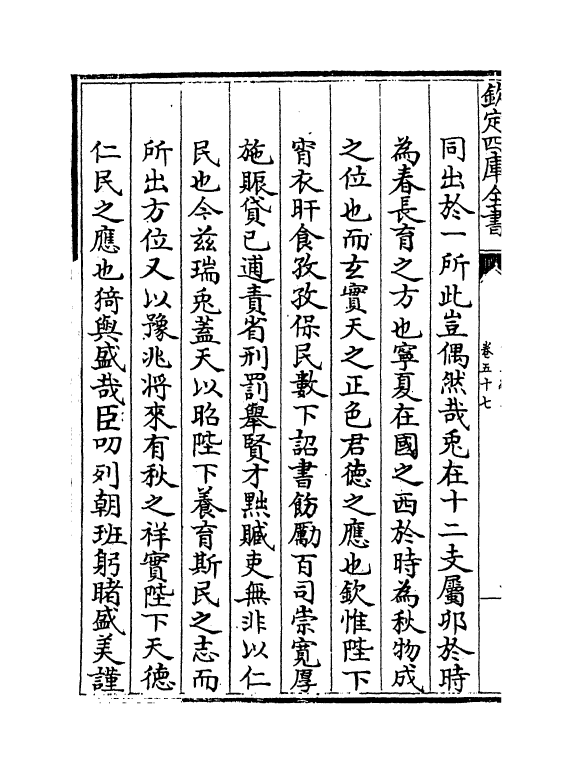 欽定四庫全書
卷五十七
同出於一所此豈偶然哉兎在十二支屬卯於時
為春長育之方也寧夏在國之西於時為秋物成
之位也而玄實天之正色君德之應也欽惟陛下
宵衣旰食孜孜保民數下詔書飭勵百司崇寛厚
施賑貸已逋責省刑罰舉賢才黜贓吏無非以仁
民也今兹瑞兎蓋天以昭陛下養育斯民之志而
所出方位又以豫兆將來有秋之祥實陛下天德
仁民之應也猗與盛哉臣叨列朝班躬睹盛美謹